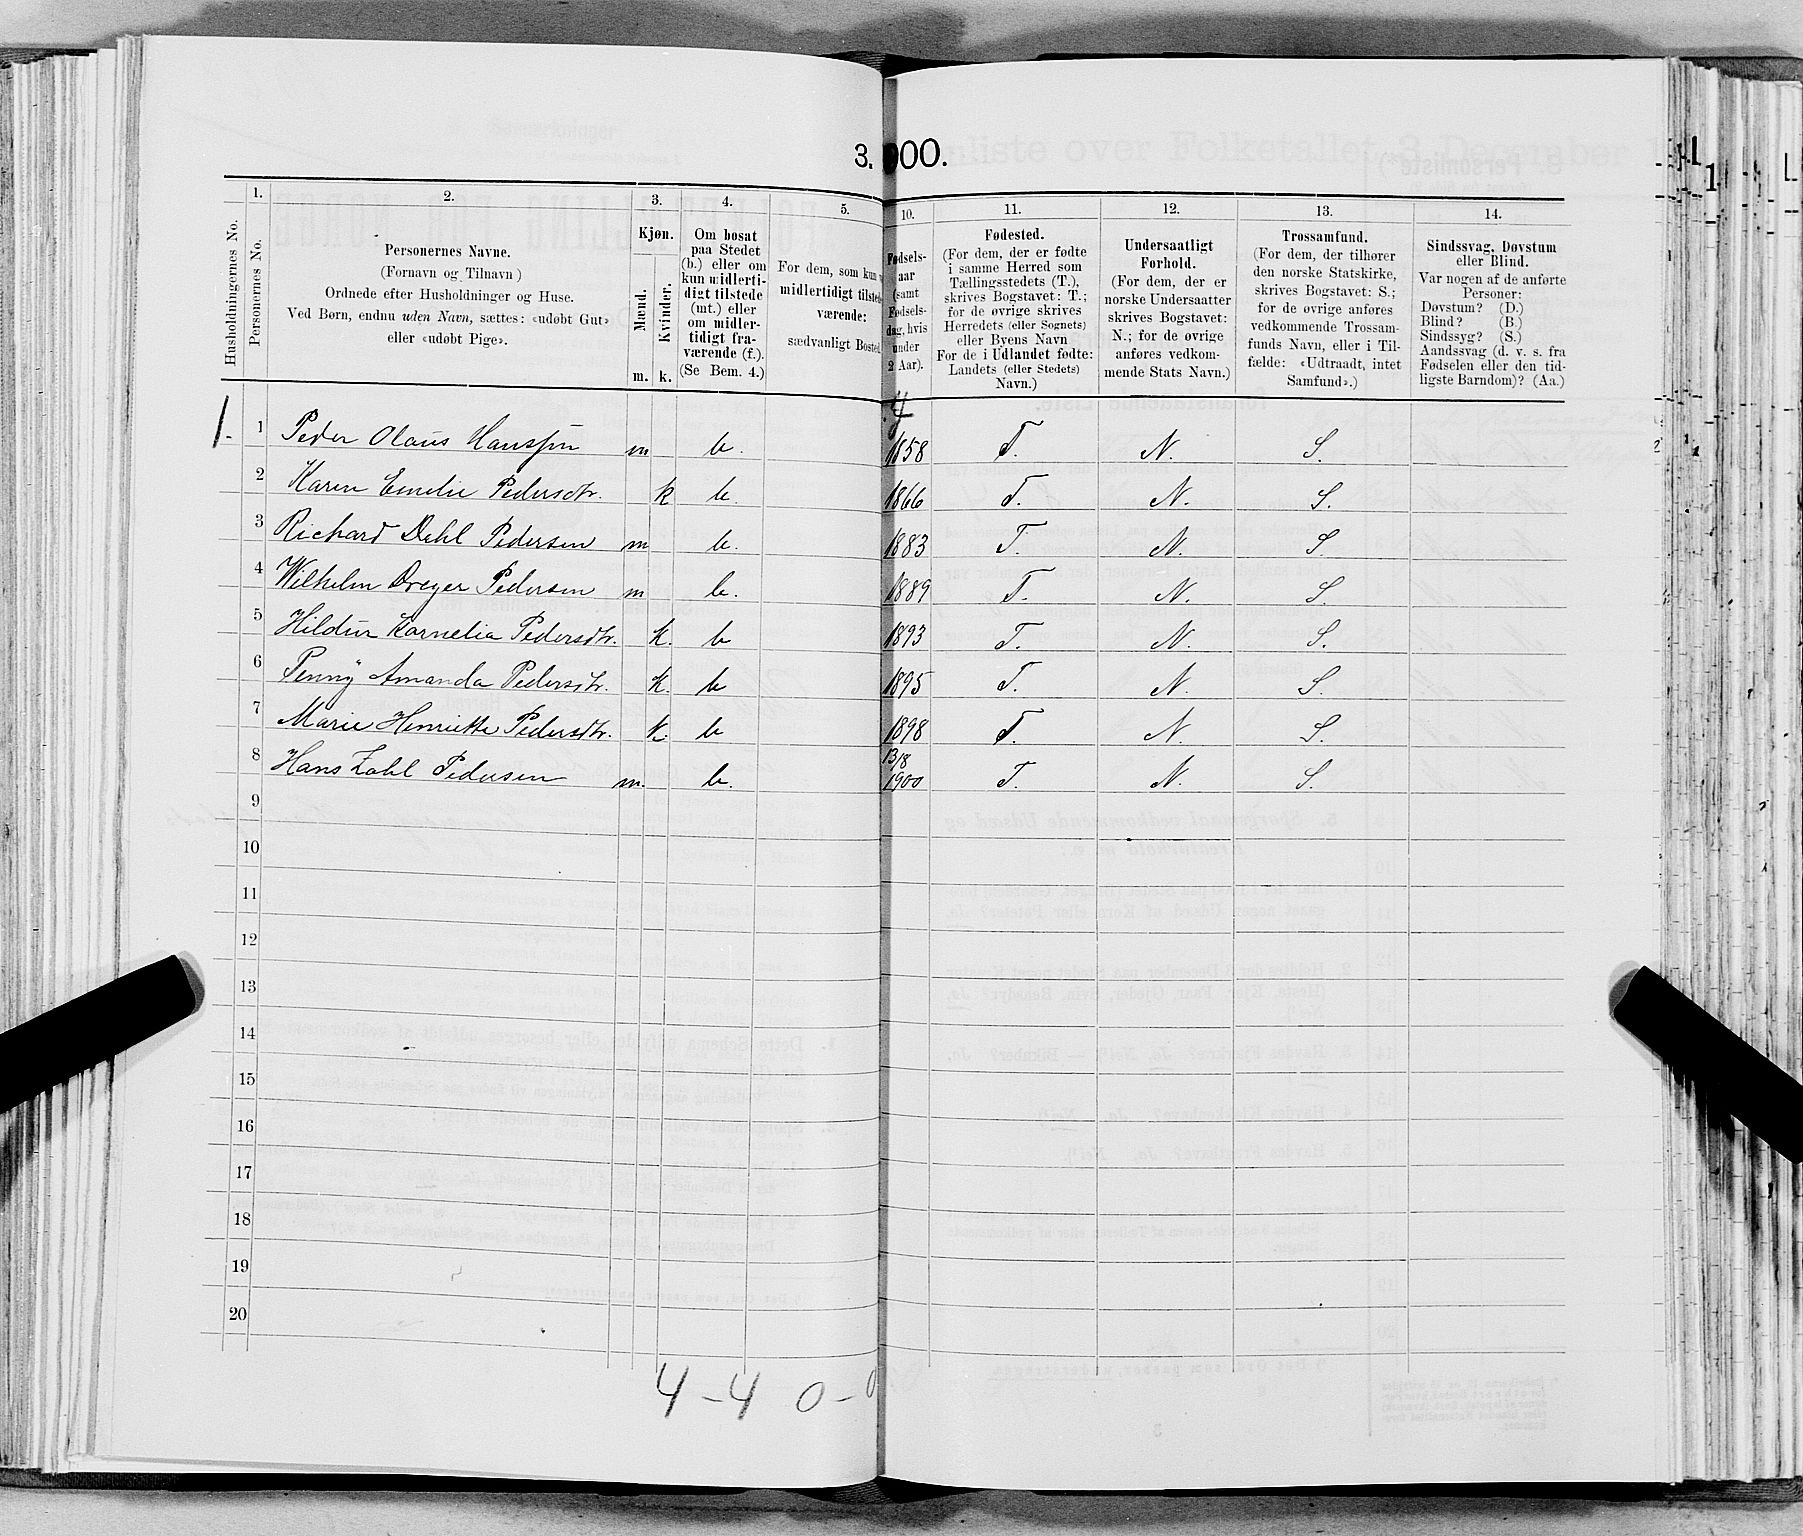 3. 900.
1. 2. 3. 4. 5. 10. 11. 12. 13. 14.
Husholdningernes No.
Personernes No.
Personernes Navne.
(Fornavn og Tilnavn)
Ordnede efter Husholdninger og Huse.
Ved Børn, endnu uden Navn, sættes: «udøbt Gut»
eller «udøbt Pige».
Kjøn.
Mænd.
Kvinder.
m. k.
Om bosat
paa Stedet
(b.) eller om
kun midlerti-
digt tilstede
(mt.) eller
om midler-
tidigt fra-
værende (f.).
(Se Bem. 4.)
For dem, som kun
midlertidigt tilstede-
værende:
sædvanligt Bosted.
Fødsels-
aar
(samt
Fødsels-
dag, hvis
under
2 Aar).
Fødested.
(For dem, der er fødte
i samme Herred som
Tællingsstedets (T.),
skrives Bogstavet: T.;
for de øvrige skrives
Herredets (eller Sognets)
eller Byens Navn
For de i Udlandet fødte:
Landets (eller Stedets)
Navn.)
Undersaatligt
Forhold.
(For dem, der er
norske Undersaatter
skrives Bogstavet:
N.; for de øvrige
anføres vedkom-
mende Stats Navn.)
Trossamfund.
(For dem, der tilhører
den norske Statskirke,
skrives Bogstavet: S.;
for de øvrige anføres
vedkommende Trossam-
funds Navn, eller i Til-
fælde: «Udtraadt, intet
Samfund».)
Sindssvag, Døvstum
eller Blind.
Var nogen af de anførte
Personer:
Døvstum? (D.)
Blind? (B.)
Sindssyg? (S.)
Aandssvag (d. v. s. fra
Fødselen eller den tid-
ligste Barndom)? (Aa.)
1. 1 Peder Olaus Hanssøn m b. 1858 T. N. S.
2 Karen Emelie Pedersdtr. k b. 1866 T. N. S.
3 Richard Dehl Pedersen m b. 1883 T. N. S
4 Wilhelm Dreyer Pedersen m b. 1889 T. N. S.
5 Hildur Kornelia Pedersdtr. k. b 1893 T. N. S.
6 Penny Amanda Pedersdtr. k. b 1895 T. N. S.
7 Marie Henriette Pedersdtr. k. b 1898 T. N. S.
8 Hans Zahl Pedersen m. b. 13/8 1900 T. N. S.
9
10
11
12
13
14
15
16
17
18
19
20
4 - 4 0 - 0